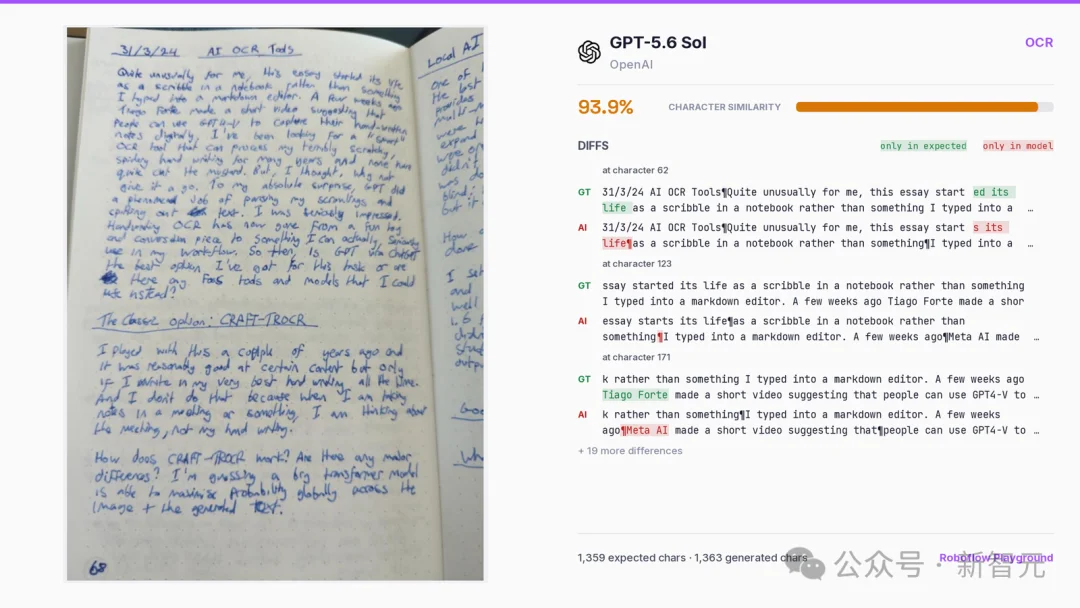 31/3/24 AI OCR Tools
Quite unusually for me, this essay started its life
as a scribble in a notebook rather than something
I typed into a markdown editor. A few weeks ago
Tiago Forte made a short video suggesting that
people can use GPT4-V to capture their hand-written
notes digitally, I've been looking for a "smart"
OCR tool that can process my terribly scratchy,
spidery hand writing for many years and none have
quite cut the mustard. But, I thought, why not
give it a go. To my absolute surprise, GPT did
a phenomenal job of parsing my scrawlings and
spitting out text. I was seriously impressed.
Handwriting OCR has now gone from a fun toy
and conversation piece to something I can actually, seriously
use in my workflow. So then, is GPT via ChatGPT
the best option I've got for this task or are
there any Foss tools and models that I could
use instead?
The Classic option: CRAFT-TROCR
I played with this a couple of years ago and
it was reasonably good at certain content but only
if I write in my very best hand writing all the time.
And I don't do that because when I am taking
notes in a meeting or something, I am thinking about
the meeting, not my hand writing.
How does CRAFT-TROCR work? Are there any major
differences? I'm guessing a big transformer model
is able to maximise probability globally across the
image + the generated text.
68
Local AI
one of
the last
multi-m
were
expand
didn't
was do
blind;
but it
How
done
I set
and
well
1.6
outpu
Goo
Wh
GPT-5.6 Sol
OpenAI
OCR
93.9%
CHARACTER SIMILARITY
DIFFS
only in expected
only in model
at character 62
GT 31/3/24 AI OCR Tools¶Quite unusually for me, this essay start ed its
life as a scribble in a notebook rather than something I typed into a …
AI 31/3/24 AI OCR Tools¶Quite unusually for me, this essay start s its
life¶as a scribble in a notebook rather than something¶I typed into a …
at character 123
GT ssay started its life as a scribble in a notebook rather than something
I typed into a markdown editor. A few weeks ago Tiago Forte made a shor
AI essay starts its life¶as a scribble in a notebook rather than
something¶I typed into a markdown editor. A few weeks ago¶Meta AI made …
at character 171
GT k rather than something I typed into a markdown editor. A few weeks ago
Tiago Forte made a short video suggesting that people can use GPT4-V to …
AI k rather than something¶I typed into a markdown editor. A few weeks
ago¶Meta AI made a short video suggesting that¶people can use GPT4-V to …
+ 19 more differences
1,359 expected chars · 1,363 generated chars
Roboflow Playground
公众号 · 新智元